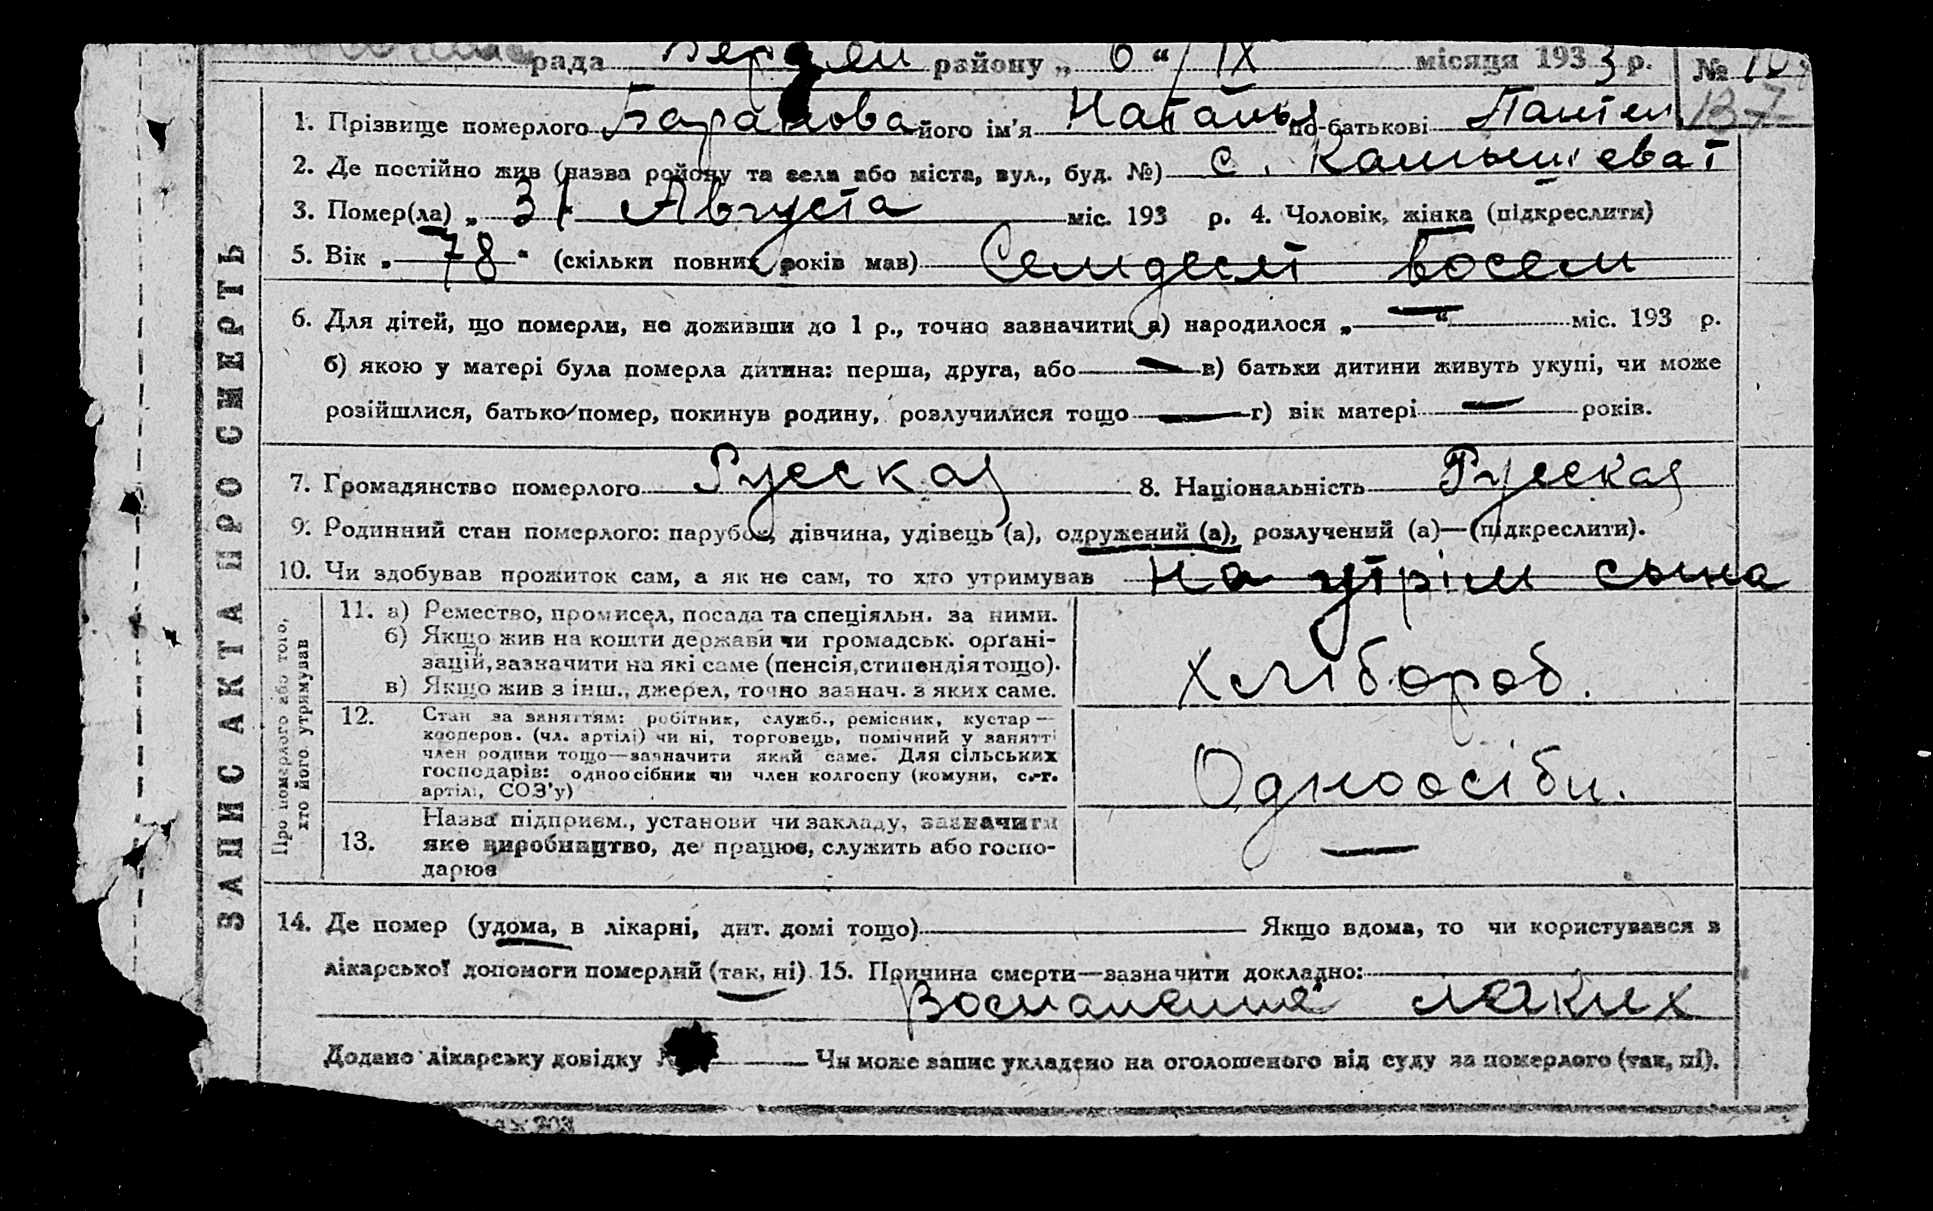 рада Бердян району „ 6 “ / IX місяця 1933 р. №
137
1. Прізвище померлого Баранова його ім’я Наталья по-батькові Пантел
2. Де постійно жив (назва району та села або міста, вул., буд. №) с. Камышеват
3. Помер(ла) „ 31 Августа міс. 193 р. 4. Чоловік, жінка (підкреслити)
5. Вік „ 78 “ (скільки повних років мав) Семдесят восем
6. Для дітей, що померли, не доживши до 1 р., точно зазначити: а) народилося „ — “ міс. 193 р.
б) якою у матері була померла дитина: перша, друга, або — в) батьки дитини живуть укупі, чи може
розійшлися, батько помер, покинув родину, розлучилися тощо — г) вік матері — років.
7. Громадянство померлого Русская 8. Національність Русская
9. Родинний стан померлого: парубок, дівчина, удівець (а), одружений (а), розлучений (а)—(підкреслити).
10. Чи здобував прожиток сам, а як не сам, то хто утримував На утрім сына
ЗАПИС АКТА ПРО СМЕРТЬ
Про померлого або того,
хто його утримував
11. а) Ремество, промисел, посада та спеціяльн. за ними.
б) Якщо жив на кошти держави чи громадськ. орґані-
зацій, зазначити на які саме (пенсія, стипендія тощо).
в) Якщо жив з інш., джерел, точно зазнач. з яких саме.
Хлібороб.
12. Стан за заняттям: робітник, служб., ремісник, кустар—
кооперов. (чл. артілі) чи ні, торговець, помічний у занятті
член родини тощо—зазначити який саме. Для сільських
господарів: одноосібник чи член колгоспу (комуни, с.-г.
артілі, СОЗ’у)
Одноосіби.
13. Назва підприєм., установи чи закладу, зазначити
яке виробництво, де працює, служить або госпо-
дарює
—
14. Де помер (удома, в лікарні, дит. домі тощо) Якщо вдома, то чи користувався з
лікарської допомоги померлий (так, ні). 15. Причина смерти—зазначити докладно:
Воспаление легких
Додано лікарську довідку — Чи може запис укладено на оголошеного від суду за померлого (так, ні).